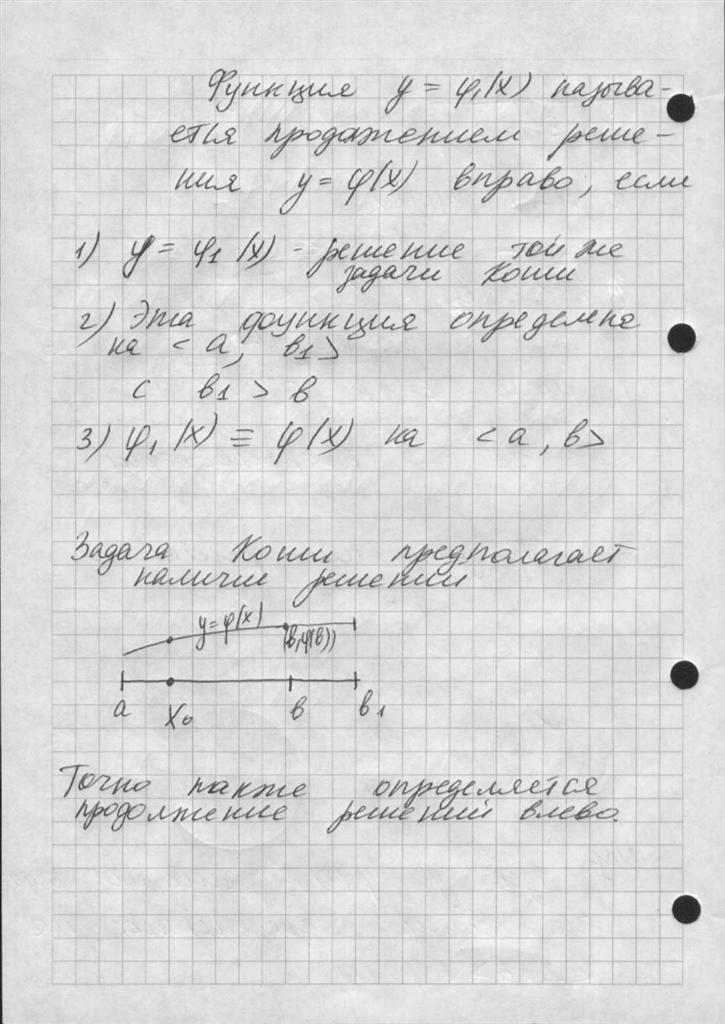 Функция y = φ₁(x) называ-
ется продажением реше-
ния y = φ(x) вправо, если
1) y = φ₁(x) - решение той же
задачи Коши
2) Эта функция определна
на < a, в₁ >
с в₁ > в
3) φ₁(x) ≡ φ(x) на < a, в >
Задача Коши предполагает
наличие решений
y = φ(x)
(в, φ(в))
a x₀ в в₁
Точно также определяется
продолжение решений влево.